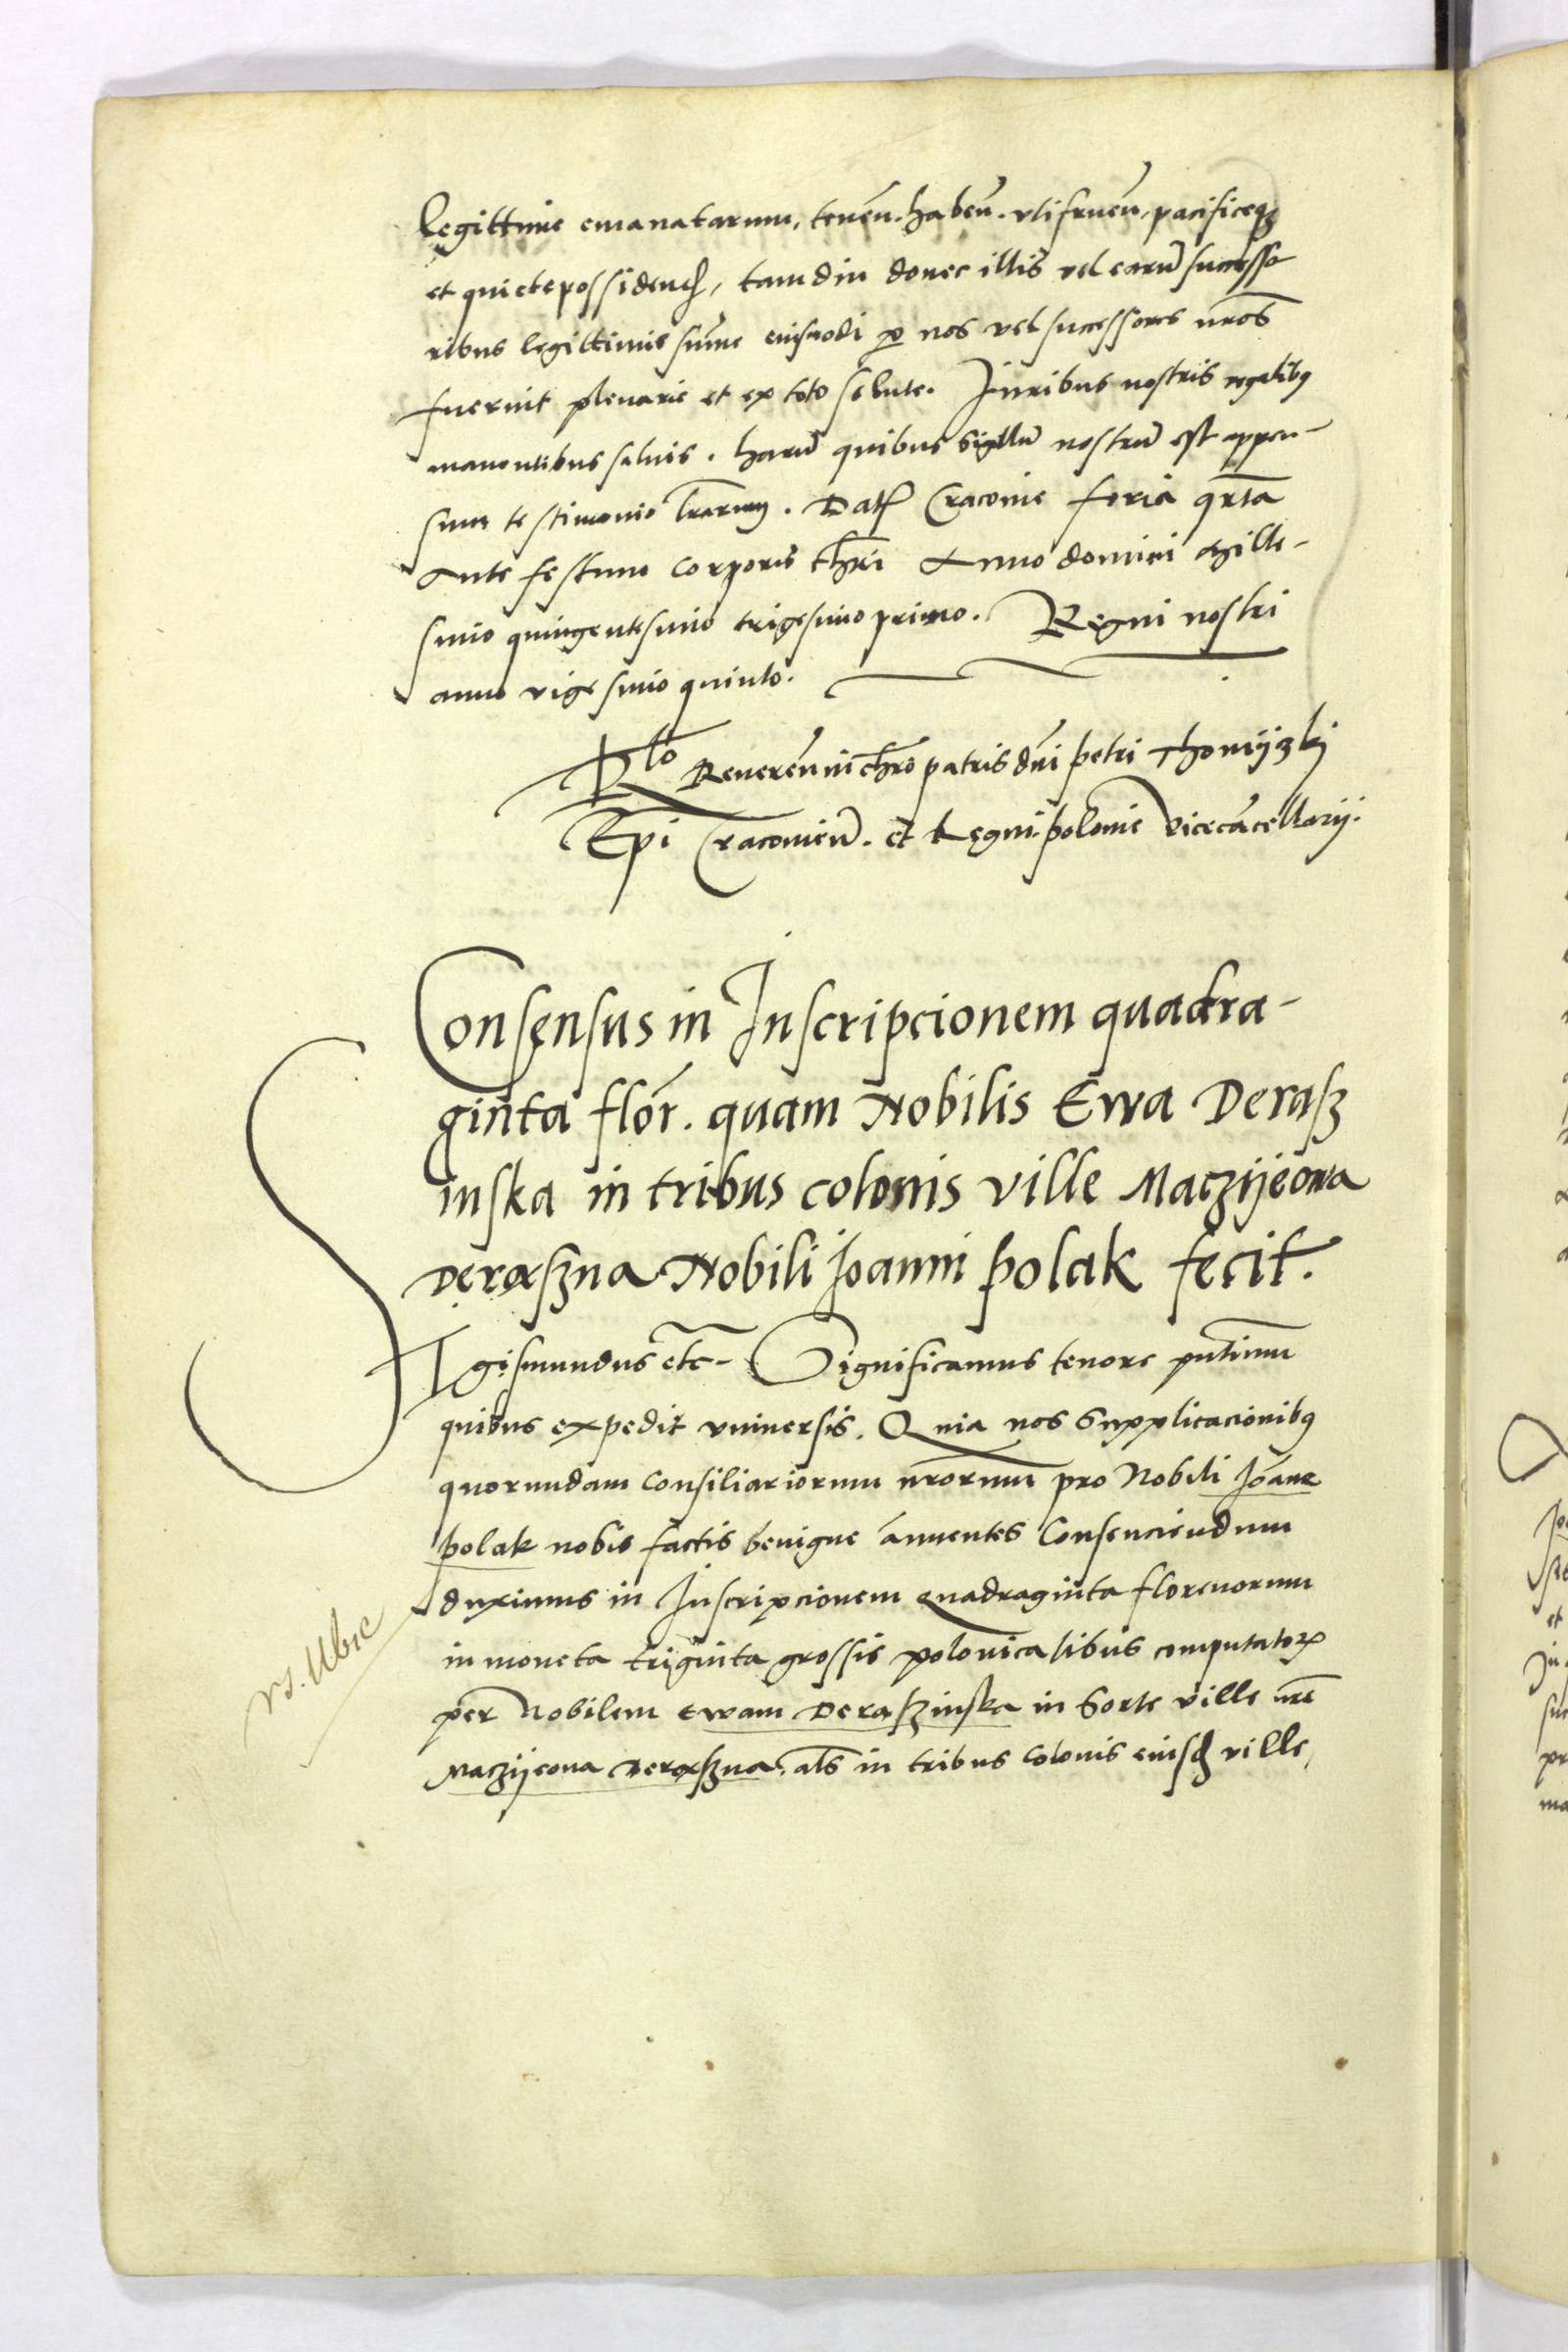 legittime emanatarum, tenen̄. haben̄. vtifruen̄, pacificeq3
et quiete possiden̄, tamdiu donec illis vel earū successo
ribus legittimis sūme eiusmodi p nos vel successores nr̄os
fuerint plenarie et ex toto solute. Juribus nostris regalibq
manentibus saluis. Harū quibus sigillū nostrū est appen-
sum testimonio lr̄arum. Datū Cracouie feria qr̄ta
Ante festum corporis chri̅ Anno domini Mille-
simo quingentesimo trigesimo primo. Regni nostri
anno vigesimo quinto.
Rlo Reueren̄ in chr̄o patris dn̄i petri Thomijczki
Ep̄i Cracouien̄. et Regni polonie Vicecācellarij.
Consensus in Inscripcionem quadra-
ginta flor̄. quam Nobilis Ewa Derasz
inska in tribus colonis ville Maczijeowa
Deraszna Nobili Joanni polak fecit.
Sigismundus etc̄- Significamus tenore pn̄tium
quibus expedit vniuersis. Quia nos Supplicacionibq
quorundam Consiliariorum nr̄orum pro Nobili Joāne
polak nobis factis benigne ānuentes Consenciendum
duximus in Inscripcionem quadraginta florenorum
in moneta triginta grossis polonicalibus computator̄
per Nobilem Ewam Deraszinska in Sorte ville nr̄e
Maczijeoua Deraszna, al̄s in tribus Colonis eiusd̄ ville,